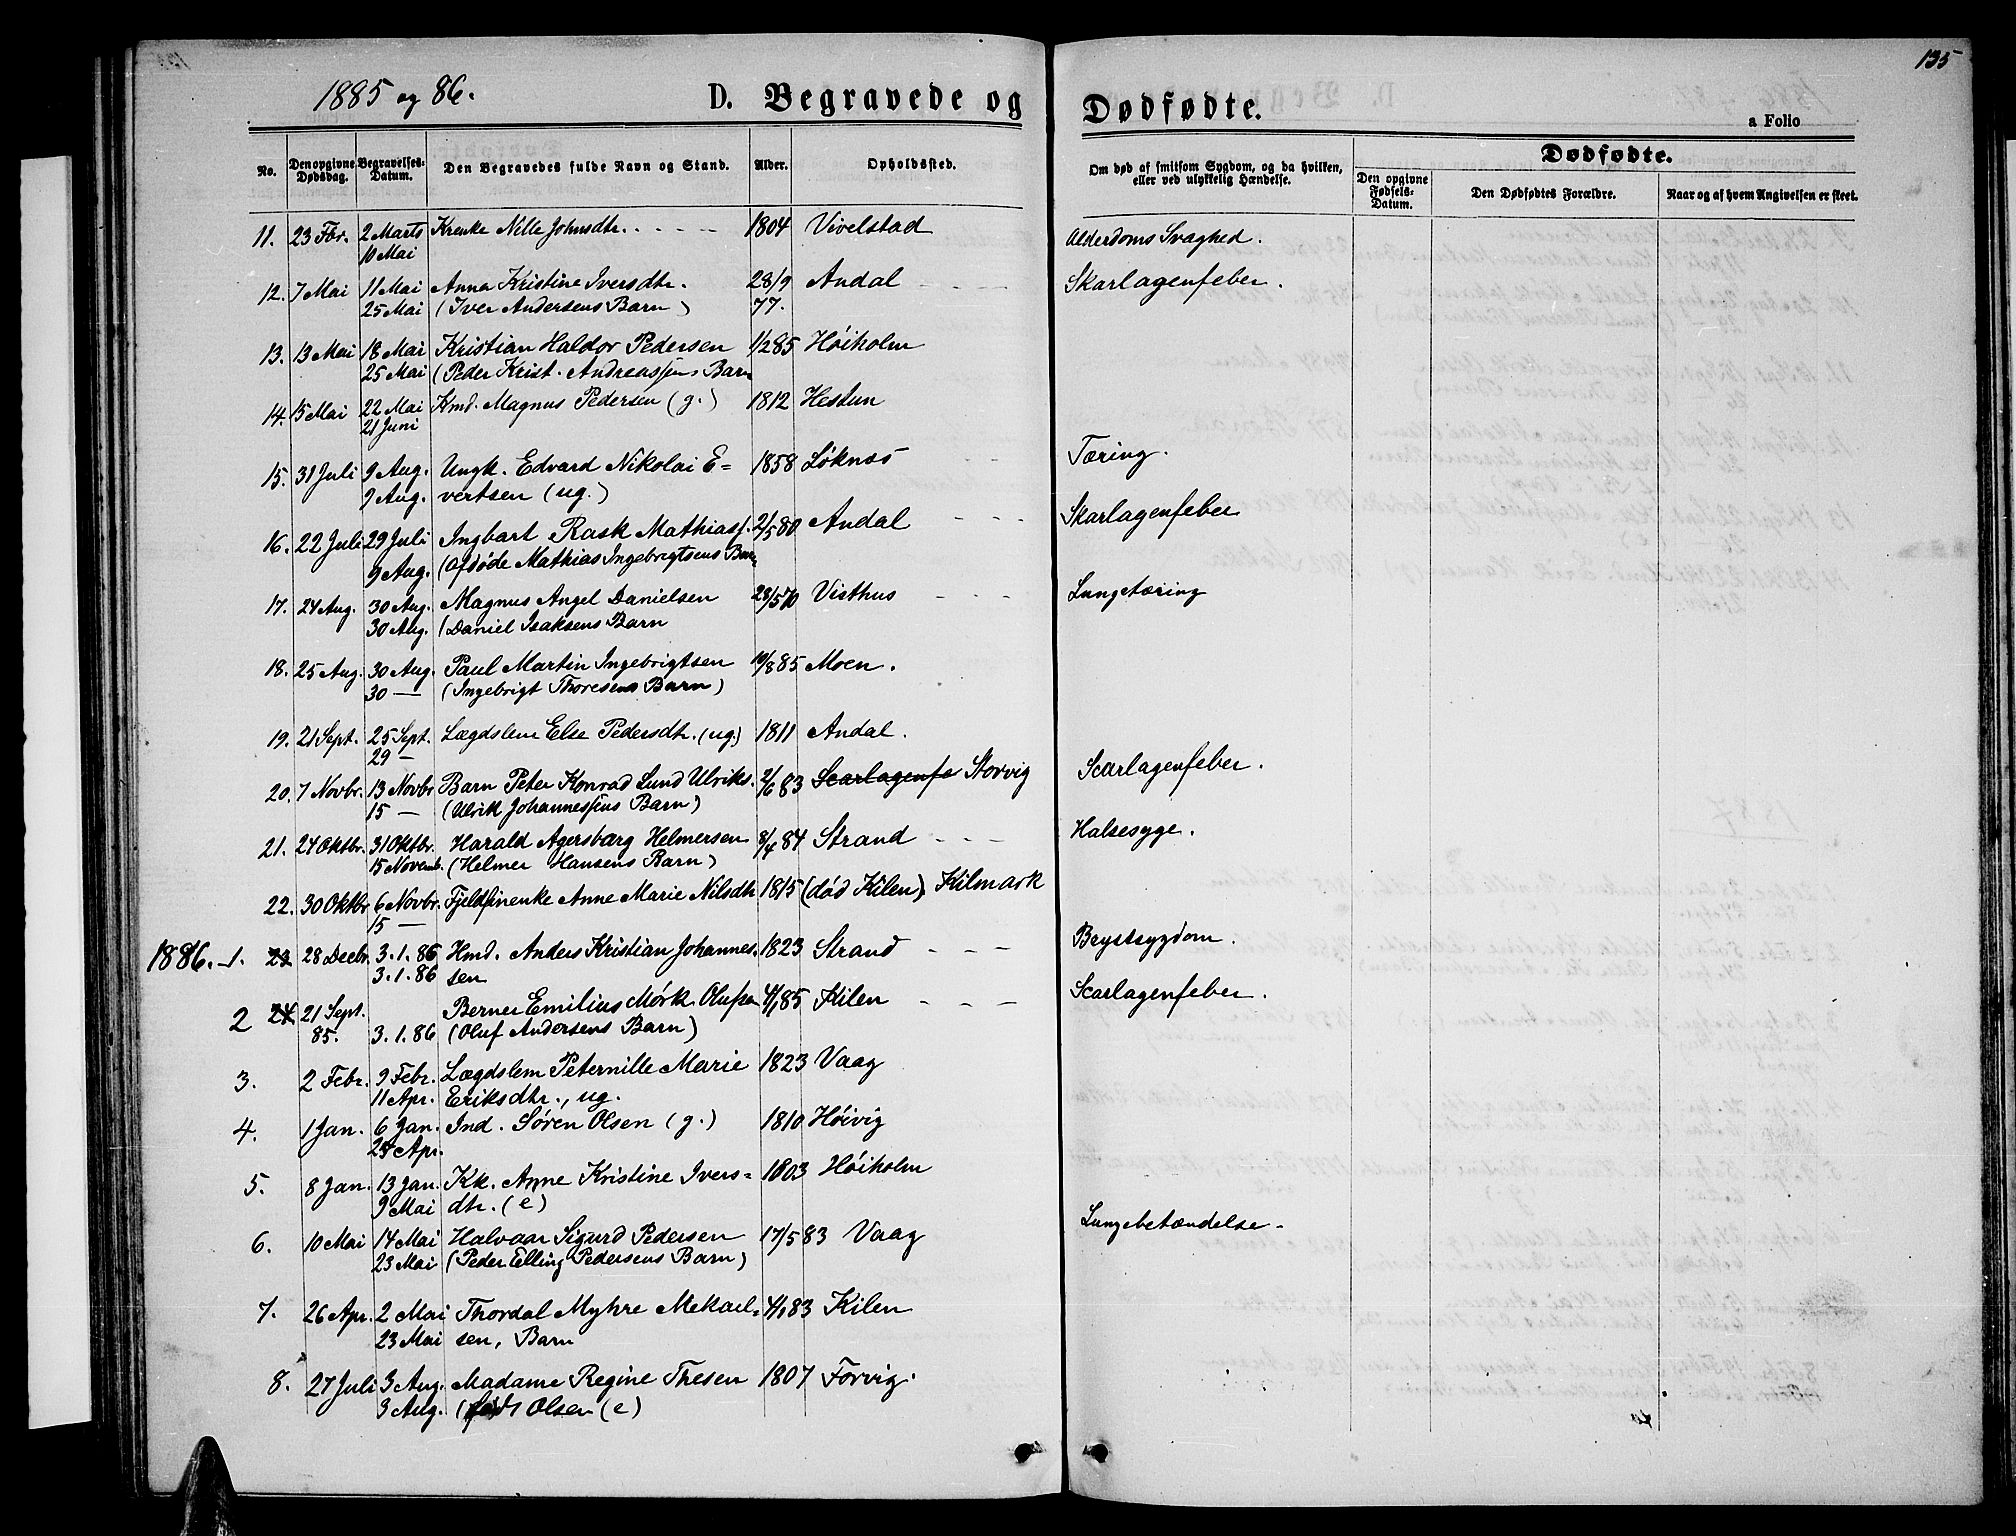 1885 og 86.
D. Begravede og
Dødfødte.
135
a Folio
No.
Den opgivne Dødsdag.
Begravelses-Datum.
Den Begravedes fulde Navn og Stand.
Alder.
Opholdssted.
Om død af smitsom Sygdom, og da hvilken, eller ved ulykkelig Hændelse.
Dødfødte.
Den opgivne Fødsels-Datum.
Den Dødfødtes Forældre.
Naar og af hvem Angivelsen er skeet.
11. 23 Fbr. 2 Marts Krenke Nille Johnsdtr. 1804 Vivelstad Alderdoms Svaghed.
10 Mai
12. 7 Mai 11 Mai Anna Kristine Iversdtr. 28/9 Andal Skarlagenfeber.
25 Mai (Iver Andersens Barn) 77.
13. 13 Mai 18 Mai Kristian Haldor Pedersen 1/2 85 Høiholm
25 Mai (Peder Krist. Andreassens Barn
14. 15 Mai 22 Mai Kmd. Magnus Pedersen (g.) 1812 Hestun
21 Juni
15. 31 Juli 9 Aug. Ungk. Edvard Nikolai E= 1858 Løknæs Tæring.
9 Aug. vertsen (ug.)
16. 22 Juli 29 Juli Ingbart Rask Mathiass. 2/5 80 Andal Skarlagenfeber
9 Aug. (Afdøde Mathias Ingebrigtsens Barn
17. 24 Aug. 30 Aug. Magnus Angel Danielsen 28/5 70 Visthus Lungetæring
30 Aug. (Daniel Isaksens Barn
18. 25 Aug. 30 Aug. Paul Martin Ingebrigtsen 10/8 85 Moen.
30 — (Ingebrigt Thoresens Barn)
19. 21 Sept. 25 Sept. Lægdslem Else Pedersdtr. (ug.) 1811 Andal.
29 —
20. 7 Novbr. 13 Novbr Barn Peter Konrad Lund Ulriks. 2/6 83 Scarlagenfe Storvig Scarlagenfeber.
15 — (Ulrik Johannessens Barn)
21. 24 Oktbr. 31 Oktbr. Harald Agersborg Helmersen 8/4 84 Strand Halsesyge.
15 Novemb. (Helmer Hansens Barn)
22. 30 Oktbr 6 Novbr. Fjeldfinenke Anne Marie Nilsdtr 1815 (død Kilen) Kilmark
15 —
1886. 1. 23 28 Decbr. 3.1.86 Hmd. Anders Kristian Johannes= 1823 Strand Brystsygdom.
3.1.86 sen
2 24 21 Sept. Berner Emilius Mørk Olufsen 4/1 85 Kilen Scarlagenfeber.
85. 3.1.86 (Oluf Andersens Barn)
3. 2 Febr. 9 Febr. Lægdslem Peternille Marie 1823 Vaag
11 Apr. Eriksdtr., ug.
4. 1 Jan. 6 Jan. Ind. Søren Olsen (g.) 1810 Høivig
24 Apr.
5. 8 Jan. 13 Jan. Kk. Anne Kristine Ivers= 1803 Høiholm
9 Mai dtr. (e)
6. 10 Mai 14 Mai Halvaar Sigurd Pedersen 17/5 83 Vaag Lungebetændelse
23 Mai (Peder Elling Pedersens Barn)
7. 26 Apr. 2 Mai Thordal Myhre Mekael= 4/1 83 Kilen
23 Mai sen, Barn
8. 27 Juli 3 Aug. Madame Regine Thesen 1807 Forvig.
3 Aug. (født Olsen (e)